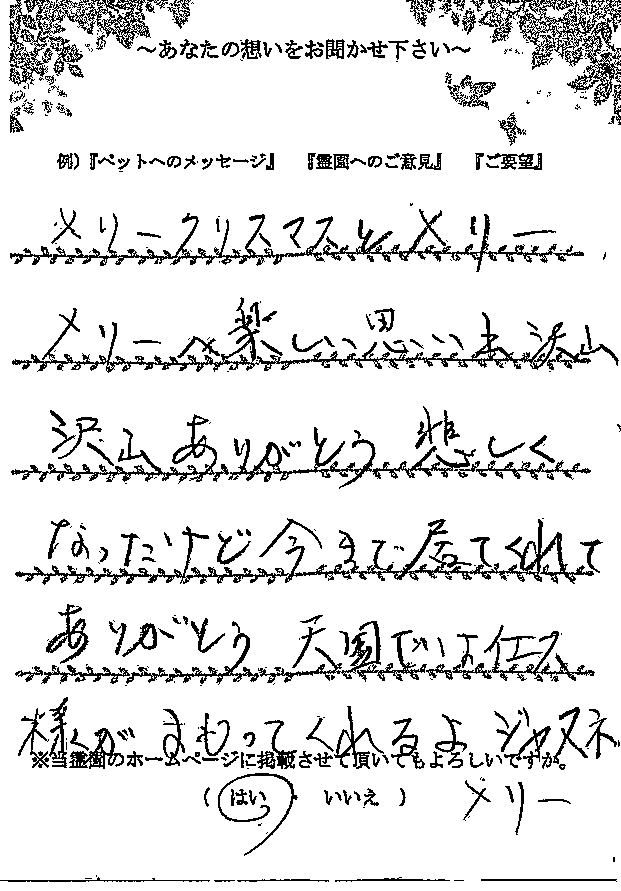 ~あなたの想いをお聞かせ下さい~
例)『ペットへのメッセージ』 『霊園へのご意見』 『ご要望』
メリークリスマスとメリー
メリーへ楽しい思い出沢山
沢山ありがとう 悲しく
なったけど今まで居てくれて
ありがとう 天国ではイエス
様がまもってくれるよ ジャスネ
※当霊園のホームページに掲載させて頂いてもよろしいですか。
( はい ・ いいえ ) メリー